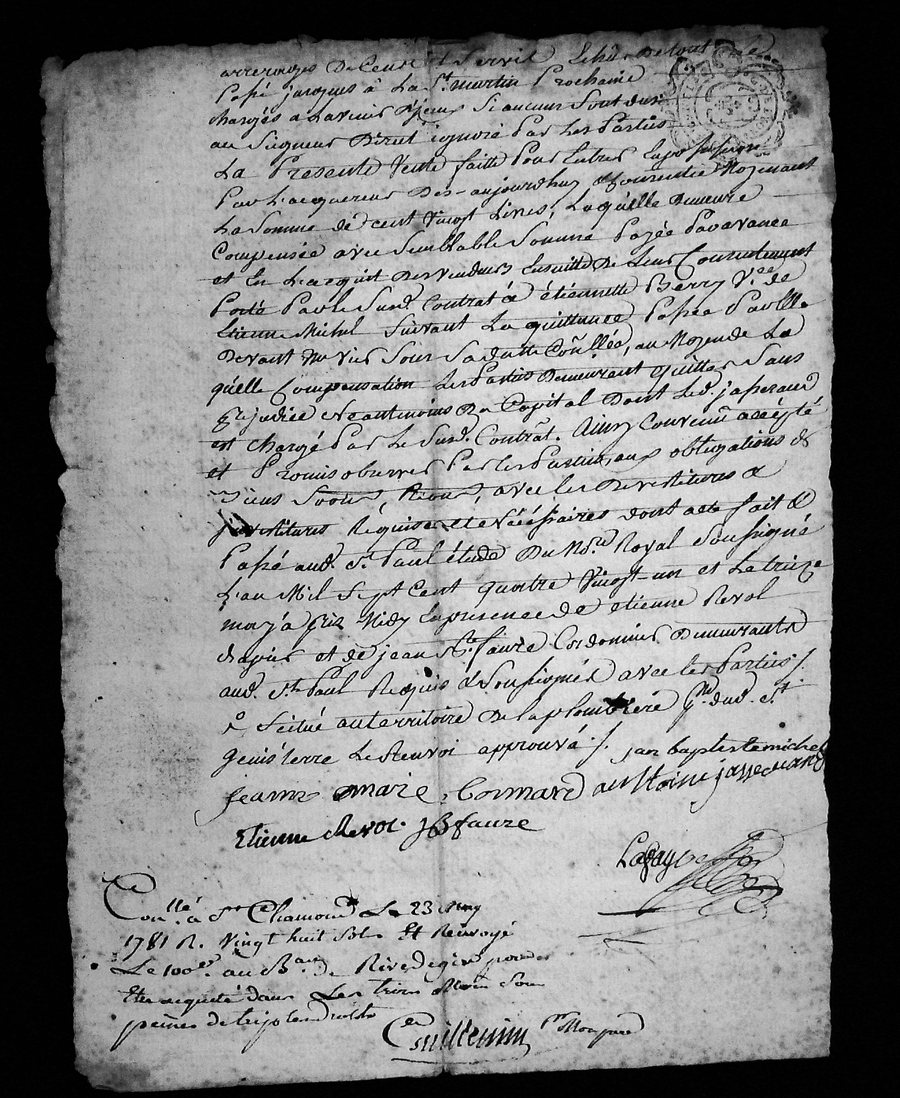 arrerages De Cens et Servis Echû De tout le
Passé jusques à La St. martin Prochaine
chargés a Lavenir D'jceux Si aucun Sont dus
au Seigneur Direct ignoré Par Les Parties
La Presente Vente faitte Pour Entrer En possession
Par L'acquereur Des-aujourdhuy Moyenant
La Somme de Cent Vingt Livres, Laquelle Demeure
Compensée avec Semblable Somme Payée Par avance
et En L'acquit Des Vendeurs Ensuitte De Leur Consentement
Porté Par le Susd. Contrat à étiennette Berry Ve. de
Etienne Michel Suivant La quittance Passée Par Elle
Devant Sous Sa datte Conllée, au Moyen de La
quelle Compensation Les Parties Demeurant quittes Sans
Prejudice Neantmoins Du Capital Dont Led. jasserand
est chargé Par Le Susd. Contrat. Ainsy Convenu accepté
et Promis observer Par les Parties, aux obligations de
Biens avec les Devestitures &
jnvestitures Requises et Nécéssaires dont acte fait &
Passé aud. St. Paul étude Du No.re Royal Soussigné
L'an Mil Sept Cent quatre Vingt un et Le treize
may a près Midy En presence de Etienne Revol
et de jean Bte. faure Cordonnier Demeurants
aud. St. Paul Requis & Soussignés avec les Parties ./.
Scitué au territoire De la plombiere Psse. dud. St.
Genis terre Le Renvoi approuvé ./. jan baptiste michel
jeanne marie Bonnard antoine jasserand
Etienne Revol. JB faure
Lafay
Conllé. à St. Chamond Le 23 may
1781 R. Vingt huit Sols Et Renvoyé
Le 100e. au Bau de Rivedegier pour
Etre aquité dans Les trois Mois Sous
peines de triple droits
Guillemin